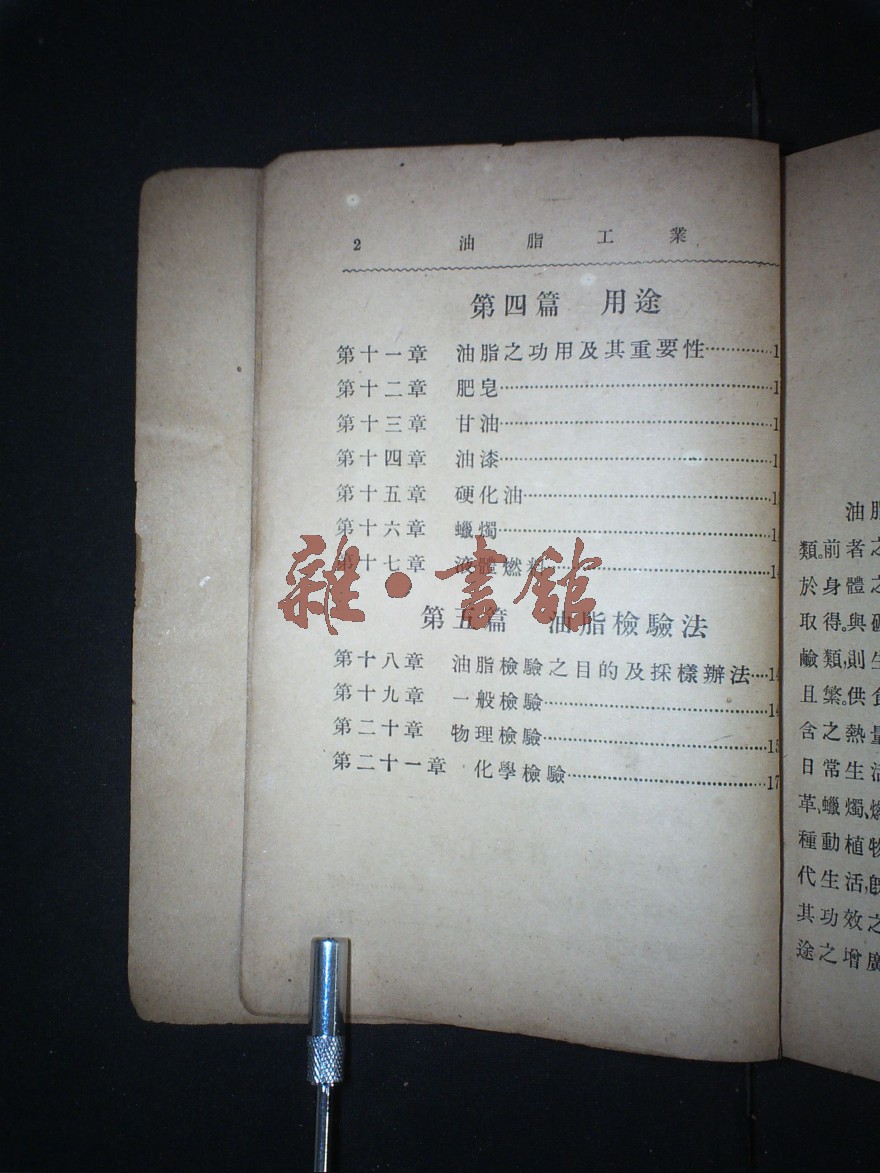 2 油脂工業
第四篇 用途
第十一章 油脂之功用及其重要性…………1
第十二章 肥皂…………1
第十三章 甘油…………1
第十四章 油漆…………1
第十五章 硬化油…………1
第十六章 蠟燭…………1
第十七章 液體燃料…………1
雜·書館
第五篇 油脂檢驗法
第十八章 油脂檢驗之目的及採樣辦法…14
第十九章 一般檢驗…………14
第二十章 物理檢驗…………15
第二十一章 化學檢驗…………17
油
類。前者之
於身體之
取得。與
鹼類,則生
且繁。供食
含之熱量
日常生活
革、蠟燭、燃
種動植物
代生活,
其功效之
途之增廣